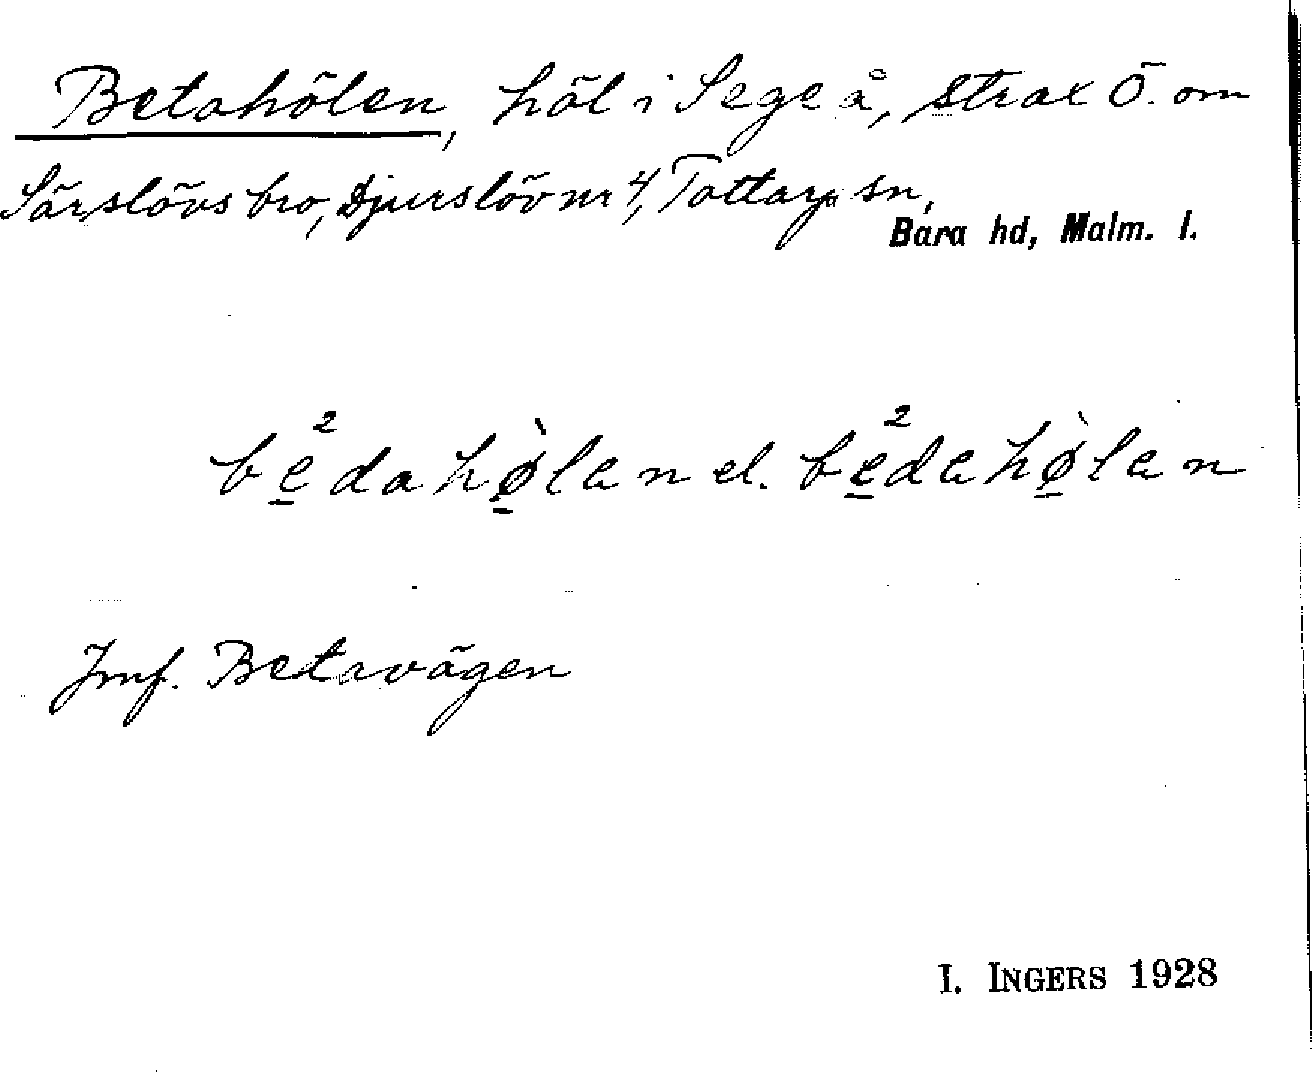 Betahölen, höl i Sege å, strax Ö. om
Särslövs bro, Djurslöv nr 4, Tottarp sn,
Bara hd, Malm. l.
be²dahø̀lan el. be²dahø̀lan
Jmf. Betavägen
I. INGERS 1928